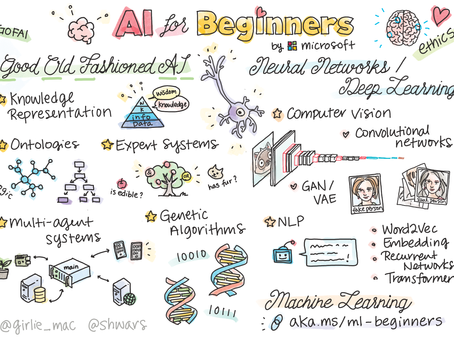 GOFAI
AI for Beginners
by microsoft
ethics
Good Old Fashioned AI
Knowledge
Representation
wisdom
knowledge
info
Data
Ontologies
Expert Systems
is edible?
has fur?
Multi-agent
systems
main
Genetic
Algorithms
10010
10111
Neural Networks /
Deep Learning
Computer Vision
Convolutional
networks
GAN/
VAE
fake person
NLP
Word2Vec
Embedding
Recurrent
Networks
Transformer
Machine Learning
aka.ms/ml-beginners
@girlie_mac @shwars